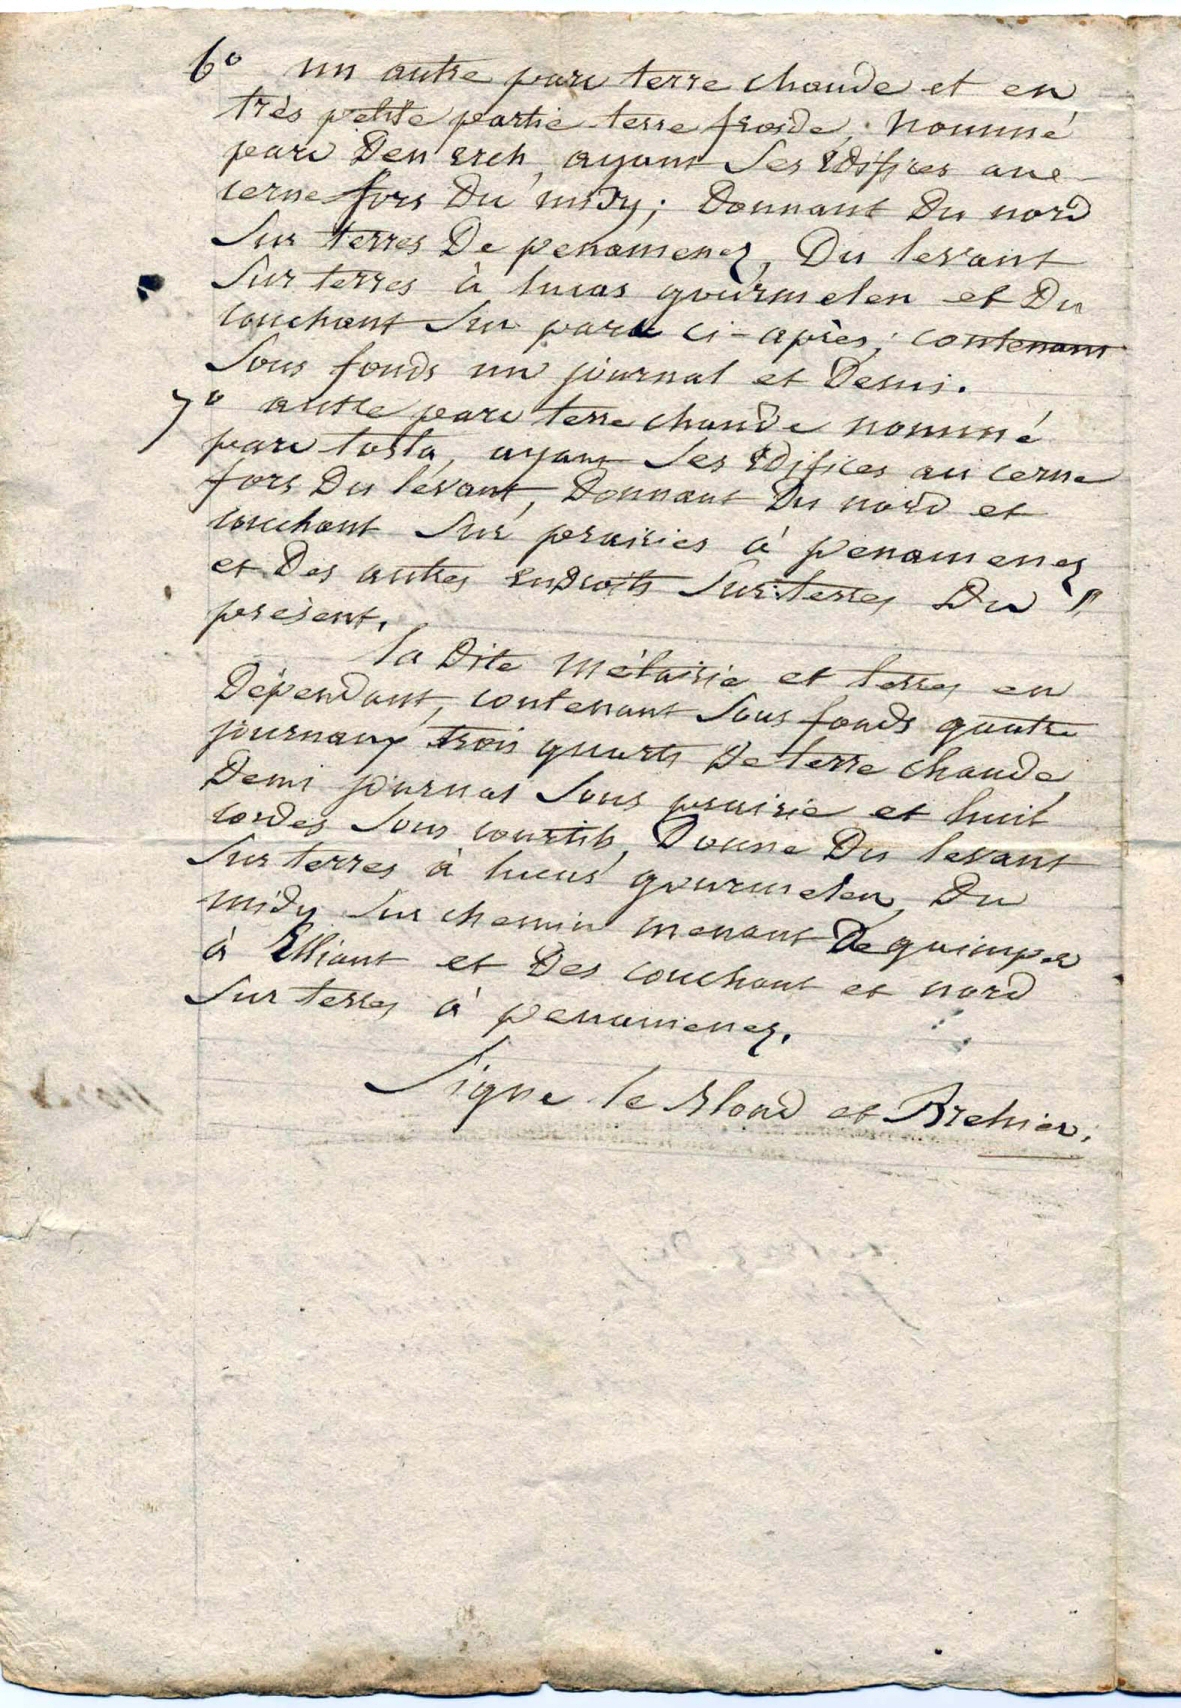 6° un autre parc terre chaude et en
très petite partie terre froide, nommé
parc Den erch, ayant Ses Edifices au
cerne fors Du midy; Donnant Du nord
Sur terres De penamenez, Du levant
Sur terres à lucas gourmelen et Du
couchant Sur parc ci-après; contenant
Sous fonds un journal et Demi.
7° autre parc terre chaude nommé
parc tosta, ayant Ses Edifices au cerne
fors Du levant, Donnant Du nord et
couchant Sur prairies à penamenez
et Des autres Endroits Sur terres Du
présent.
la Dite Métairie et terres en
Dépendant, contenant Sous fonds quatre
journaux trois quarts De terre chaude,
Demi journal Sous prairie et huit
cordes Sous courtils, Donne Du levant
Sur terres à lucas gourmelen, Du
midy Sur chemin menant De quimper
à Elliant et Des couchant et nord
Sur terres à penamenez.
Signe le Blond et Brehier.